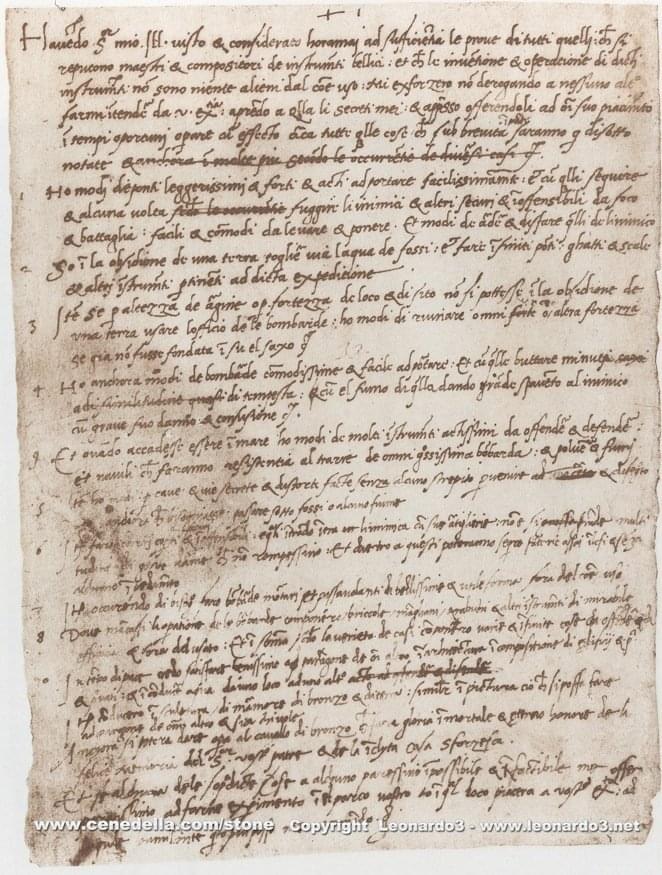 Havẽdo Sr mio Ill. visto & considerato horamai ad sufficiẽtia le prove di tutti quelli ch si
reputono maestri & compositori de instrumti bellici: et ch le inuẽtione & operatione di dicti
instrumti nõ sono niente alieni dal cõe uso: mi exforzero nõ derogando a nessuno altro
farmi intẽdere da v. exa: aprẽdo a qlla li secreti mei: & appsso offerendoli ad oi suo piacimto
ĩ tempi oportuni operare cũ effecto circa tutte qlle cose ch sub brevita saranno q di sotto
notate & anchora ĩ molte piu secõdo le occurrẽtie de diuersi casi
Ho modi de ponti leggerissimi & forti & acti ad portare facilissimamẽte: et cũ qlli seguire
& alcuna volta secõdo le occurrẽtie fuggire li inimici & altri securi & ĩoffensibili da foco
& battaglia: facili & cõmodi da levare & ponere. Et modi de arder & disfare qlli de linimico
2 So ĩ la obsidione de una terra toglier via laqua de fossi: et fare ĩfiniti pōti ghatti & scale
& altri ĩstrumti ptinẽti ad dicta expeditione
3 Itẽ se p alteza de argine o p forteza de loco & di sito nõ si potesse ĩ la obsidione de
una terra usare lofficio de le bombarde: ho modi di ruinare omni forte o altra forteza
se gia nõ fusse fondata ĩ su el saxo
4 Ho anchora modi de bombarde cõmodissime & facile ad portare: Et cũ qlle buttare minuti
ad similitudine quasi di tempesta: & cũ el fumo di qlla dando grãde spavẽto al inimico
cũ grave suo danno & confusione
9 Et quãdo accadesse essere ĩ mare ho modi de molti ĩstrumti actissimi da offender & defender:
et navili ch faranno resistentia al trarre de omni grossissima bõbarda: & polver & fumi
5 Itẽ ho modi p cave & vie secrete & distorte facte senza alcuno strepito pervenire ad & disegnto
ãchora ch bisognasse passare sotto fossi o alcuno fiume
6 Itẽ faro carri coperti securi & ĩoffensibili: e quali ĩtrãdo ĩtra li inimici cũ sue artiglierie: nõ e si grãde multi
tudine di gẽte darme ch nõ rompessino: Et dietro a questi poterãno seguire fãterie assai illesi & senza
alchuno ĩpedimẽto
7 Itẽ occurrendo di bisogno faro bõbarde mortari et passavolanti di bellissime & utile forme fora del cõe uso
8 Dove mãcassi la opatione de le bõbarde componero briccole mãgani trabuchi & altri ĩstrumti di mirabile
efficacia & fora del usato: Et ĩ sõma secõdo la varieta de casi cõponero varie & ĩfinite cose da offender
10 In tẽpo di pace credo satisfare benissimo ad paragone de oi altro ĩ architectura ĩ compositione di edificii &
& privati: & ĩ conducer aqua da uno loco ad uno altro acto ad offender & difender
Itẽ conducero ĩ sculptura di marmore di bronzo & di terra: similr ĩ pictura cio ch si possa fare
ad paragone de omni altro & sia chi vole
Ancora si potera dare opa al cavallo di bronzo ch sara gloria ĩmortale & eterno honore de la
felice memoria del Sr vostro patre & de la ĩclyta casa sforzesca.
Et se alchuna de le sopra dicte cose a alcuno paressino ĩpossibile & ĩfactibile me offero
paratissimo ad farne experimento ĩ el parco vostro o ĩ qual loco piacera a vostra exa ad
www.cenedella.com/stone Copyright Leonardo3 - www.leonardo3.net